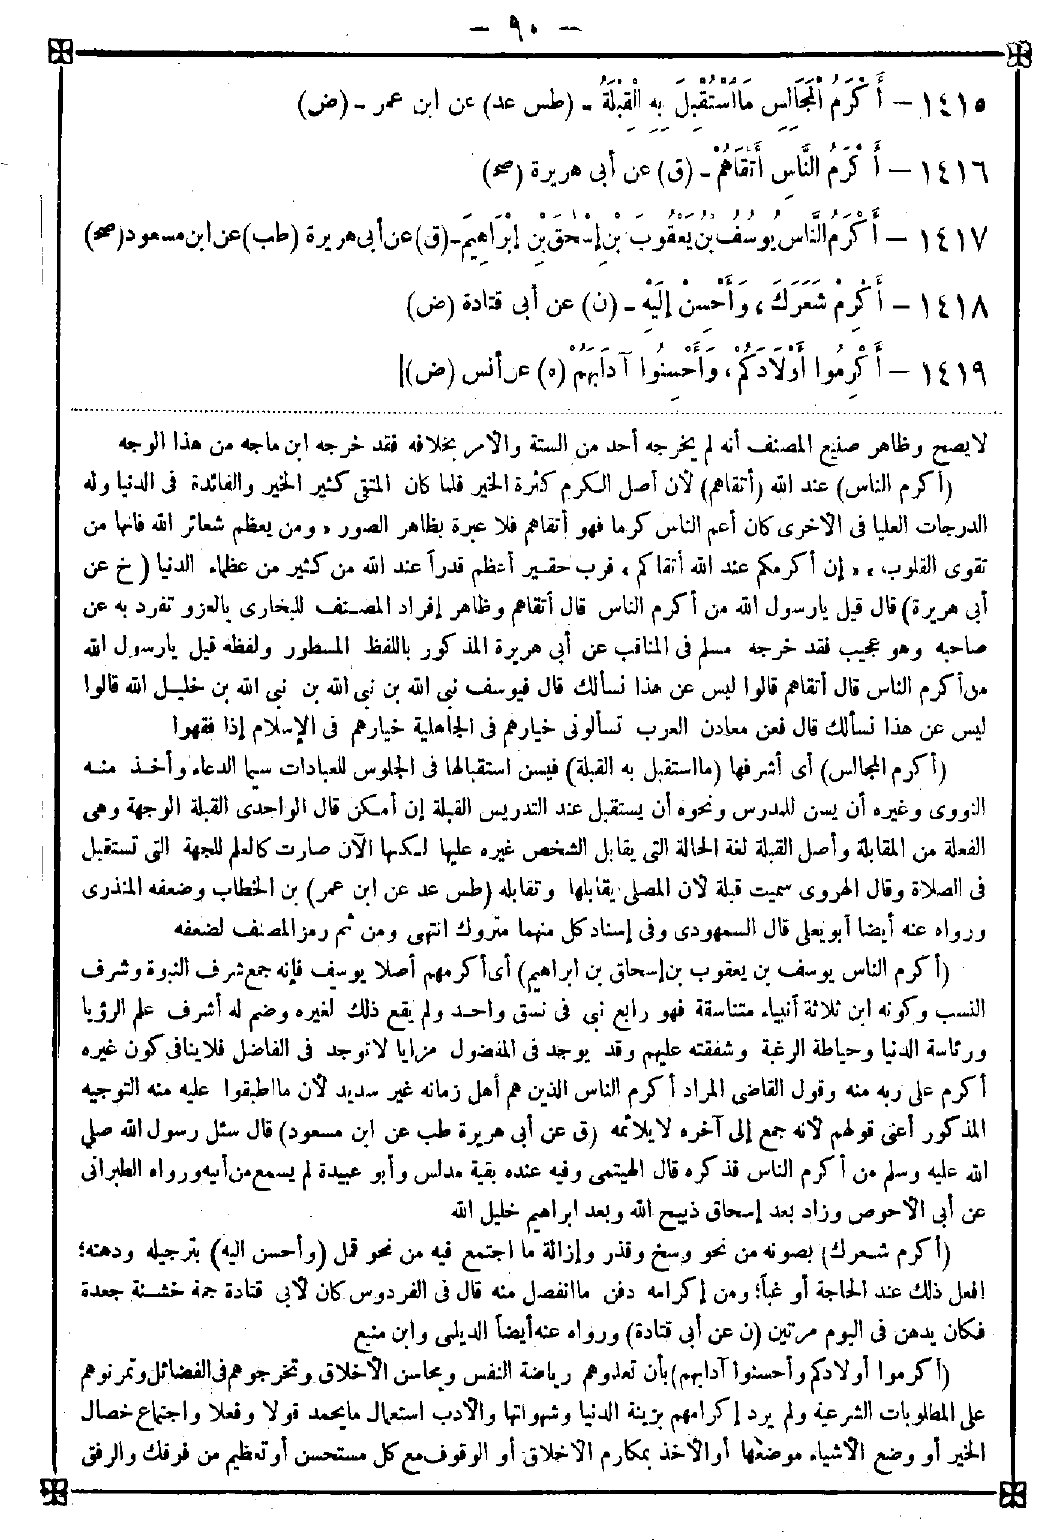 - ٩٠ -
١٤١٥ - أَكْرَمُ الْمَجَالِسِ مَا اسْتُقْبِلَ بِهِ الْقِبْلَةُ - (طس عد) عن ابن عمر - (ض)
١٤١٦ - أَكْرَمُ النَّاسِ أَتْقَاهُمْ - (ق) عن أبى هريرة (صح)
١٤١٧ - أَكْرَمُ النَّاسِ يُوسُفُ بن يَعْقُوبَ بْنِ إِسْحٰقَ بْنِ إِبْرَاهِيمَ - (ق) عن أبى هريرة (طب) عن ابن مسعود (صح)
١٤١٨ - أَكْرِمْ شَعَرَكَ، وَأَحْسِنْ إِلَيْهِ - (ن) عن أبى قتادة (ض)
١٤١٩ - أَكْرِمُوا أَوْلَادَكُمْ، وَأَحْسِنُوا آدَابَهُمْ (ه) عن أنس (ض)
لا يصح وظاهر صنيع المصنف أنه لم يخرجه أحد من الستة والأمر بخلافه فقد خرجه ابن ماجه من هذا الوجه
(أكرم الناس) عند الله (أتقاهم) لأن أصل الكرم كثرة الخير فلما كان المتقى كثير الخير والفائدة فى الدنيا وله
الدرجات العليا فى الأخرى كان أعم الناس كرما فهو أتقاهم فلا عبرة بظاهر الصور، ومن يعظم شعائر الله فانها من
تقوى القلوب، ، إن أكرمكم عند الله أتقاكم، فرب حقير أعظم قدراً عند الله من كثير من عظماء الدنيا (خ عن
أبى هريرة) قال قيل يارسول الله من أكرم الناس قال أتقاهم وظاهر إفراد المصنف للبخارى بالعزو تفرد به عن
صاحبه وهو عجيب فقد خرجه مسلم فى المناقب عن أبى هريرة المذكور باللفظ المسطور ولفظه قيل يارسول الله
من أكرم الناس قال أتقاهم قالوا ليس عن هذا نسألك قال فيوسف نبى الله بن نبى الله بن نبى الله بن خليل الله قالوا
ليس عن هذا نسألك قال فعن معادن العرب تسألونى خيارهم فى الجاهلية خيارهم فى الإسلام إذا فقهوا
(أكرم المجالس) أى أشرفها (ما استقبل به القبلة) فيسن استقبالها فى الجلوس للعبادات سيما الدعاء وأخذ منه
النووى وغيره أن يسن للمدرس ونحوه أن يستقبل عند التدريس القبلة إن أمكن قال الواحدى القبلة الوجهة وهى
الفعلة من المقابلة وأصل القبلة لغة الحالة التى يقابل الشخص غيره عليها لكنها الآن صارت كالعلم للجهة التى تستقبل
فى الصلاة وقال الهروى سميت قبلة لأن المصلى يقابلها وتقابله (طس عد عن ابن عمر) بن الخطاب وضعفه المنذرى
ورواه عنه أيضا أبو يعلى قال السمهودى وفى إسناد كل منهما متروك انتهى ومن ثم رمز المصنف لضعفه
(أكرم الناس يوسف بن يعقوب بن إسحاق بن ابراهيم) أى أكرمهم أصلا يوسف فإنه جمع شرف النبوة وشرف
النسب وكونه ابن ثلاثة أنبياء متناسقة فهو رابع نبى فى نسق واحد ولم يقع ذلك لغيره وضم له أشرف علم الرؤيا
ورئاسة الدنيا وحياطة الرغبة وشفقته عليهم وقد يوجد فى المفضول مزايا لاتوجد فى الفاضل فلا ينافى كون غيره
أكرم على ربه منه وقول القاضى المراد أكرم الناس الذين هم أهل زمانه غير سديد لأن ما اطبقوا عليه منه التوجيه
المذكور أعنى قولهم لأنه جمع إلى آخره لا يلائمه (ق عن أبى هريرة طب عن ابن مسعود) قال سئل رسول الله صلى
الله عليه وسلم من أكرم الناس فذكره قال الهيتمى وفيه عنده بقية مدلس وأبو عبيدة لم يسمع من أبيه ورواه الطبرانى
عن أبى الأحوص وزاد بعد إسحاق ذبيح الله وبعد ابراهيم خليل الله
(أكرم شعرك) بصونه من نحو وسخ وقذر وإزالة ما اجتمع فيه من نحو قمل (وأحسن اليه) بترجيله ودهنه؛
افعل ذلك عند الحاجة أو غباً؛ ومن إكرامه دفن ما انفصل منه قال فى الفردوس كان لأبى قتادة جمة خشنة جعدة
فكان يدهن فى اليوم مرتين (ن عن أبى قتادة) ورواه عنه أيضاً الديلمى وابن منيع
(أكرموا أولادكم وأحسنوا آدابهم) بأن تعلموهم رياضة النفس ومحاسن الأخلاق وتخرجوهم فى الفضائل وتمرنوهم
على المطلوبات الشرعية ولم يرد إكرامهم بزينة الدنيا وشهواتها والأدب استعمال ما يحمد قولا وفعلا واجتماع خصال
الخير أو وضع الأشياء موضعها أو الأخذ بمكارم الأخلاق أو الوقوف مع كل مستحسن أو تعظيم من فوقك والرفق